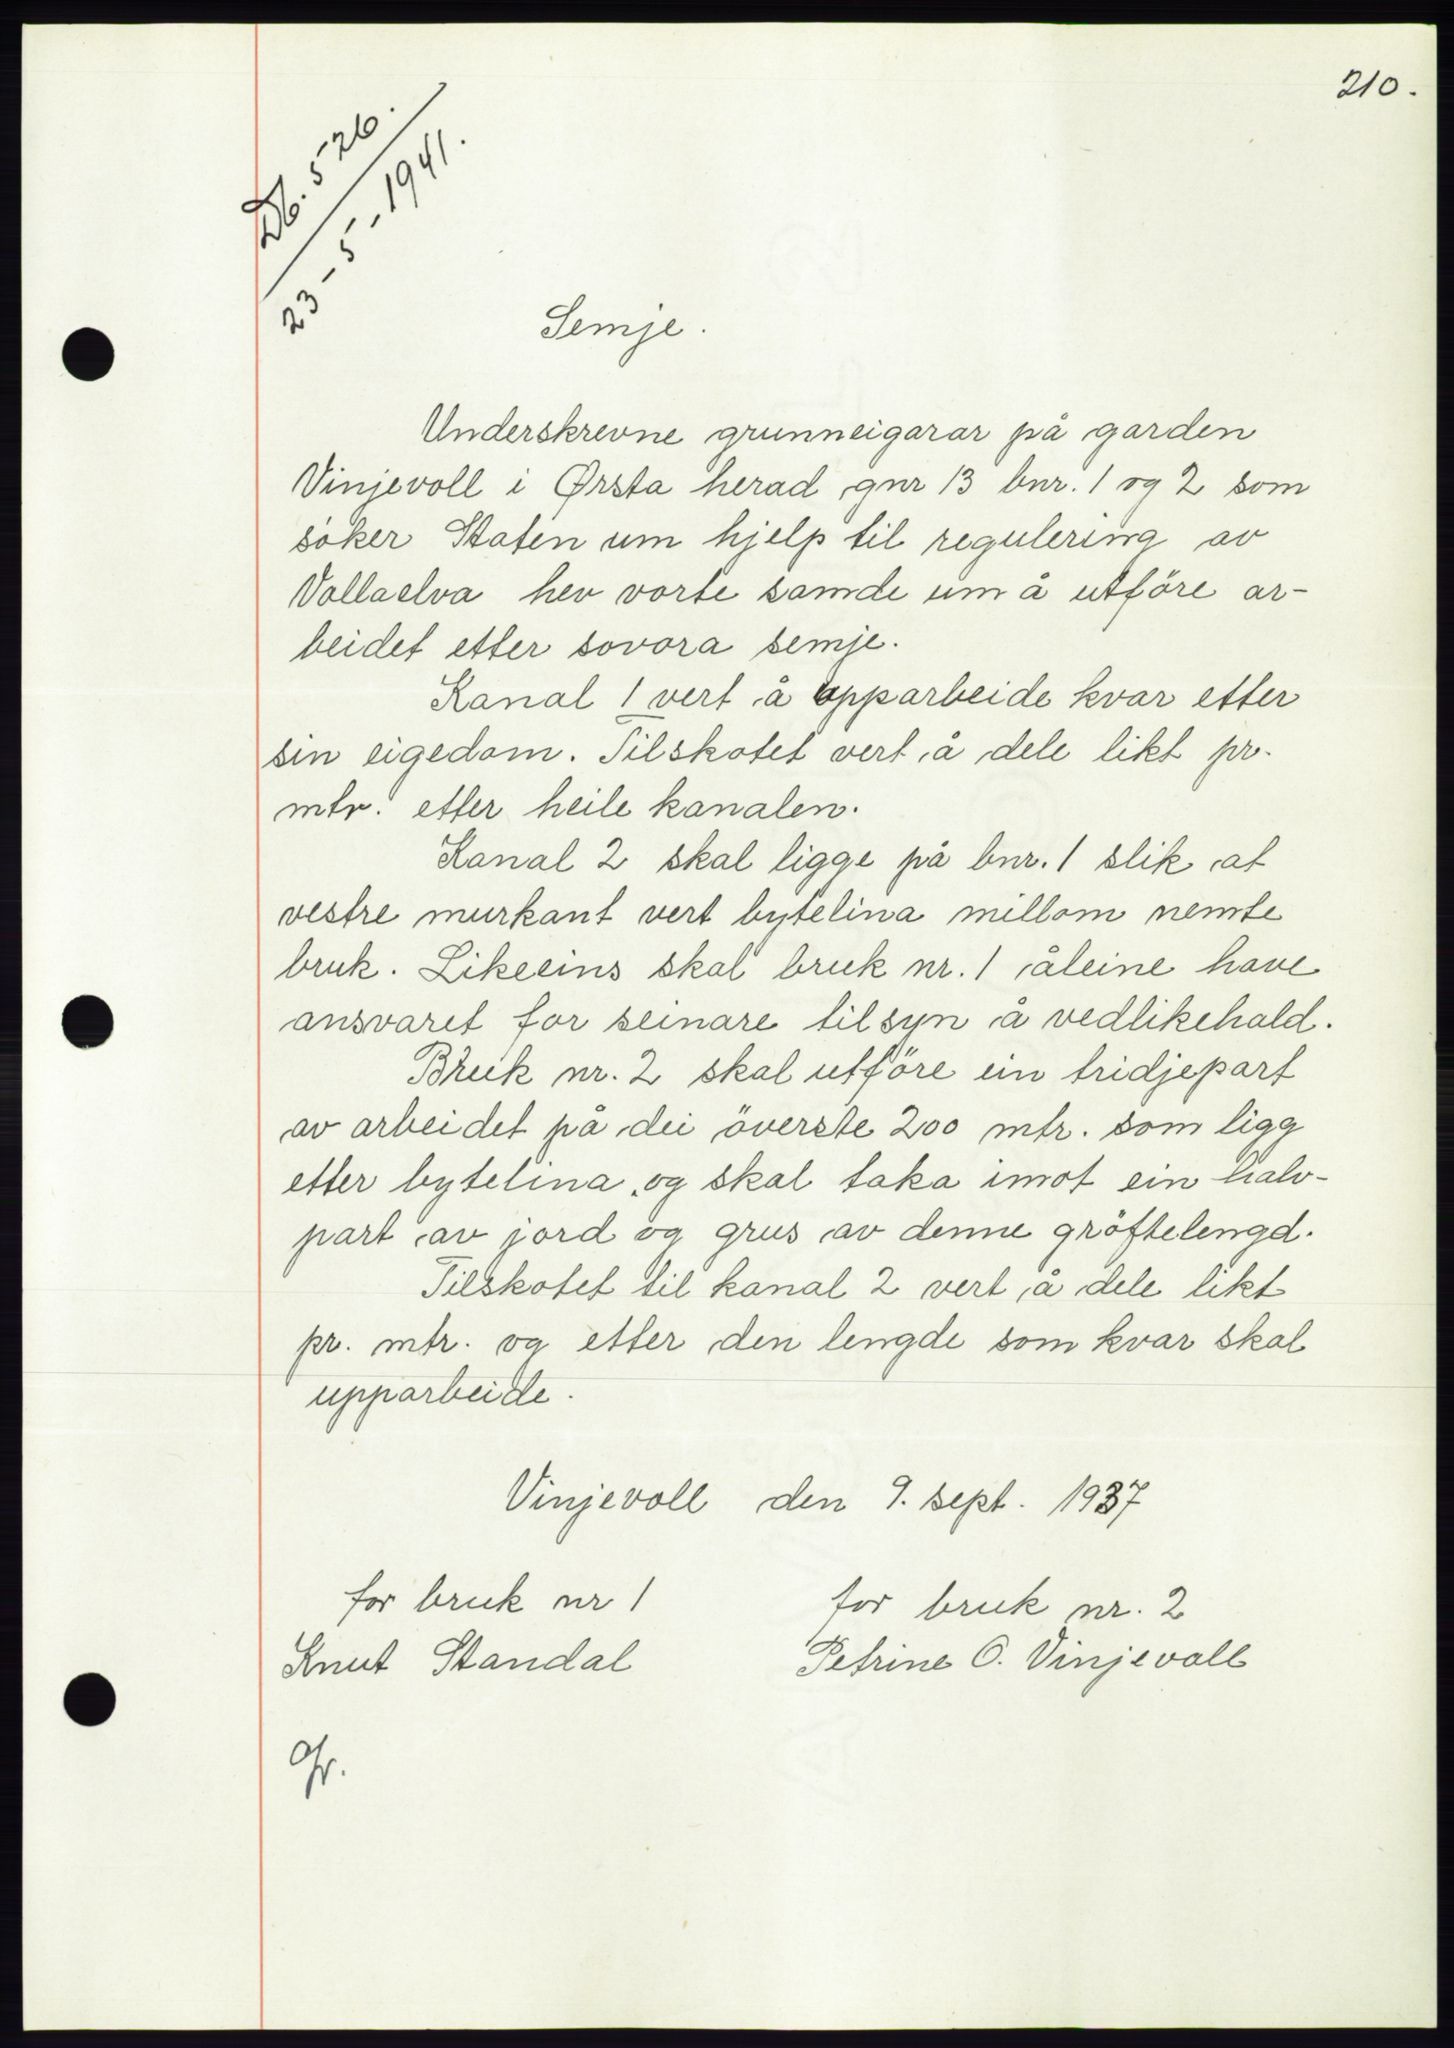 210.
Db. 526.
23-5-1941.
Semje.
Underskrevne grunneigarar på garden
Vinjevoll i Ørsta herad gnr 13 bnr. 1 og 2 som
söker Staten um hjelp til regulering av
Vollaelva hev vorte samde um å utföre ar-
beidet etter sovora semje.
Kanal 1 vert å opparbeide kvar etter
sin eigedom. Tilskotet vert å dele likt pr.
mtr. etter heile kanalen.
Kanal 2 skal ligge på bnr. 1 slik at
vestre murkant vert bytelina millom nemte
bruk. Likeeins skal bruk nr. 1 åleine have
ansvaret for seinare tilsyn å vedlikehald.
Bruk nr. 2 skal utföre ein tridjepart
av arbeidet på dei överste 200 mtr. som ligg
etter bytelina og skal taka imot ein halv-
part av jord og grus av denne gröftelengd.
Tilskotet til kanal 2 vert å dele likt
pr. mtr. og etter den lengde som kvar skal
upparbeide.
Vinjevoll den 9. sept. 1937
for bruk nr 1 for bruk nr. 2
Knut Standal Petrine O. Vinjevoll